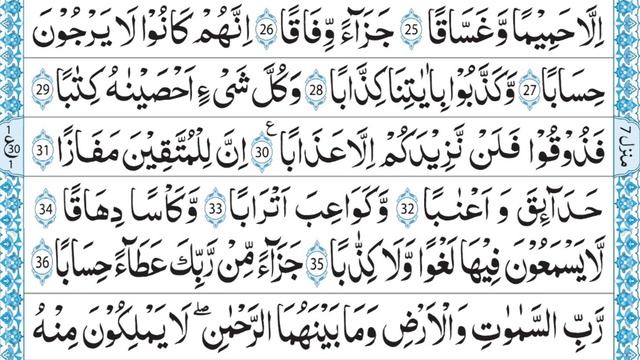 اِلَّا حَمِيْمًا وَّغَسَّاقًا ﴿25﴾ جَزَآءً وِّفَاقًا ﴿26﴾ اِنَّهُمْ كَانُوْا لَا يَرْجُوْنَ
حِسَابًا ﴿27﴾ وَّكَذَّبُوْا بِاٰيٰتِنَا كِذَّابًا ﴿28﴾ وَكُلَّ شَىْءٍ اَحْصَيْنٰهُ كِتٰبًا ﴿29﴾
منزل ٧
فَذُوْقُوْا فَلَنْ نَّزِيْدَكُمْ اِلَّا عَذَابًا ﴿30﴾ ع اِنَّ لِلْمُتَّقِيْنَ مَفَازًا ﴿31﴾
1 ع 30 1
حَدَآئِقَ وَ اَعْنَابًا ﴿32﴾ وَّكَوَاعِبَ اَتْرَابًا ﴿33﴾ وَّكَاْسًا دِهَاقًا ﴿34﴾
لَّا يَسْمَعُوْنَ فِيْهَا لَغْوًا وَّلَا كِذّٰبًا ﴿35﴾ جَزَآءً مِّنْ رَّبِّكَ عَطَآءً حِسَابًا ﴿36﴾
رَّبِّ السَّمٰوٰتِ وَالْاَرْضِ وَمَا بَيْنَهُمَا الرَّحْمٰنِ ۖ لَا يَمْلِكُوْنَ مِنْهُ